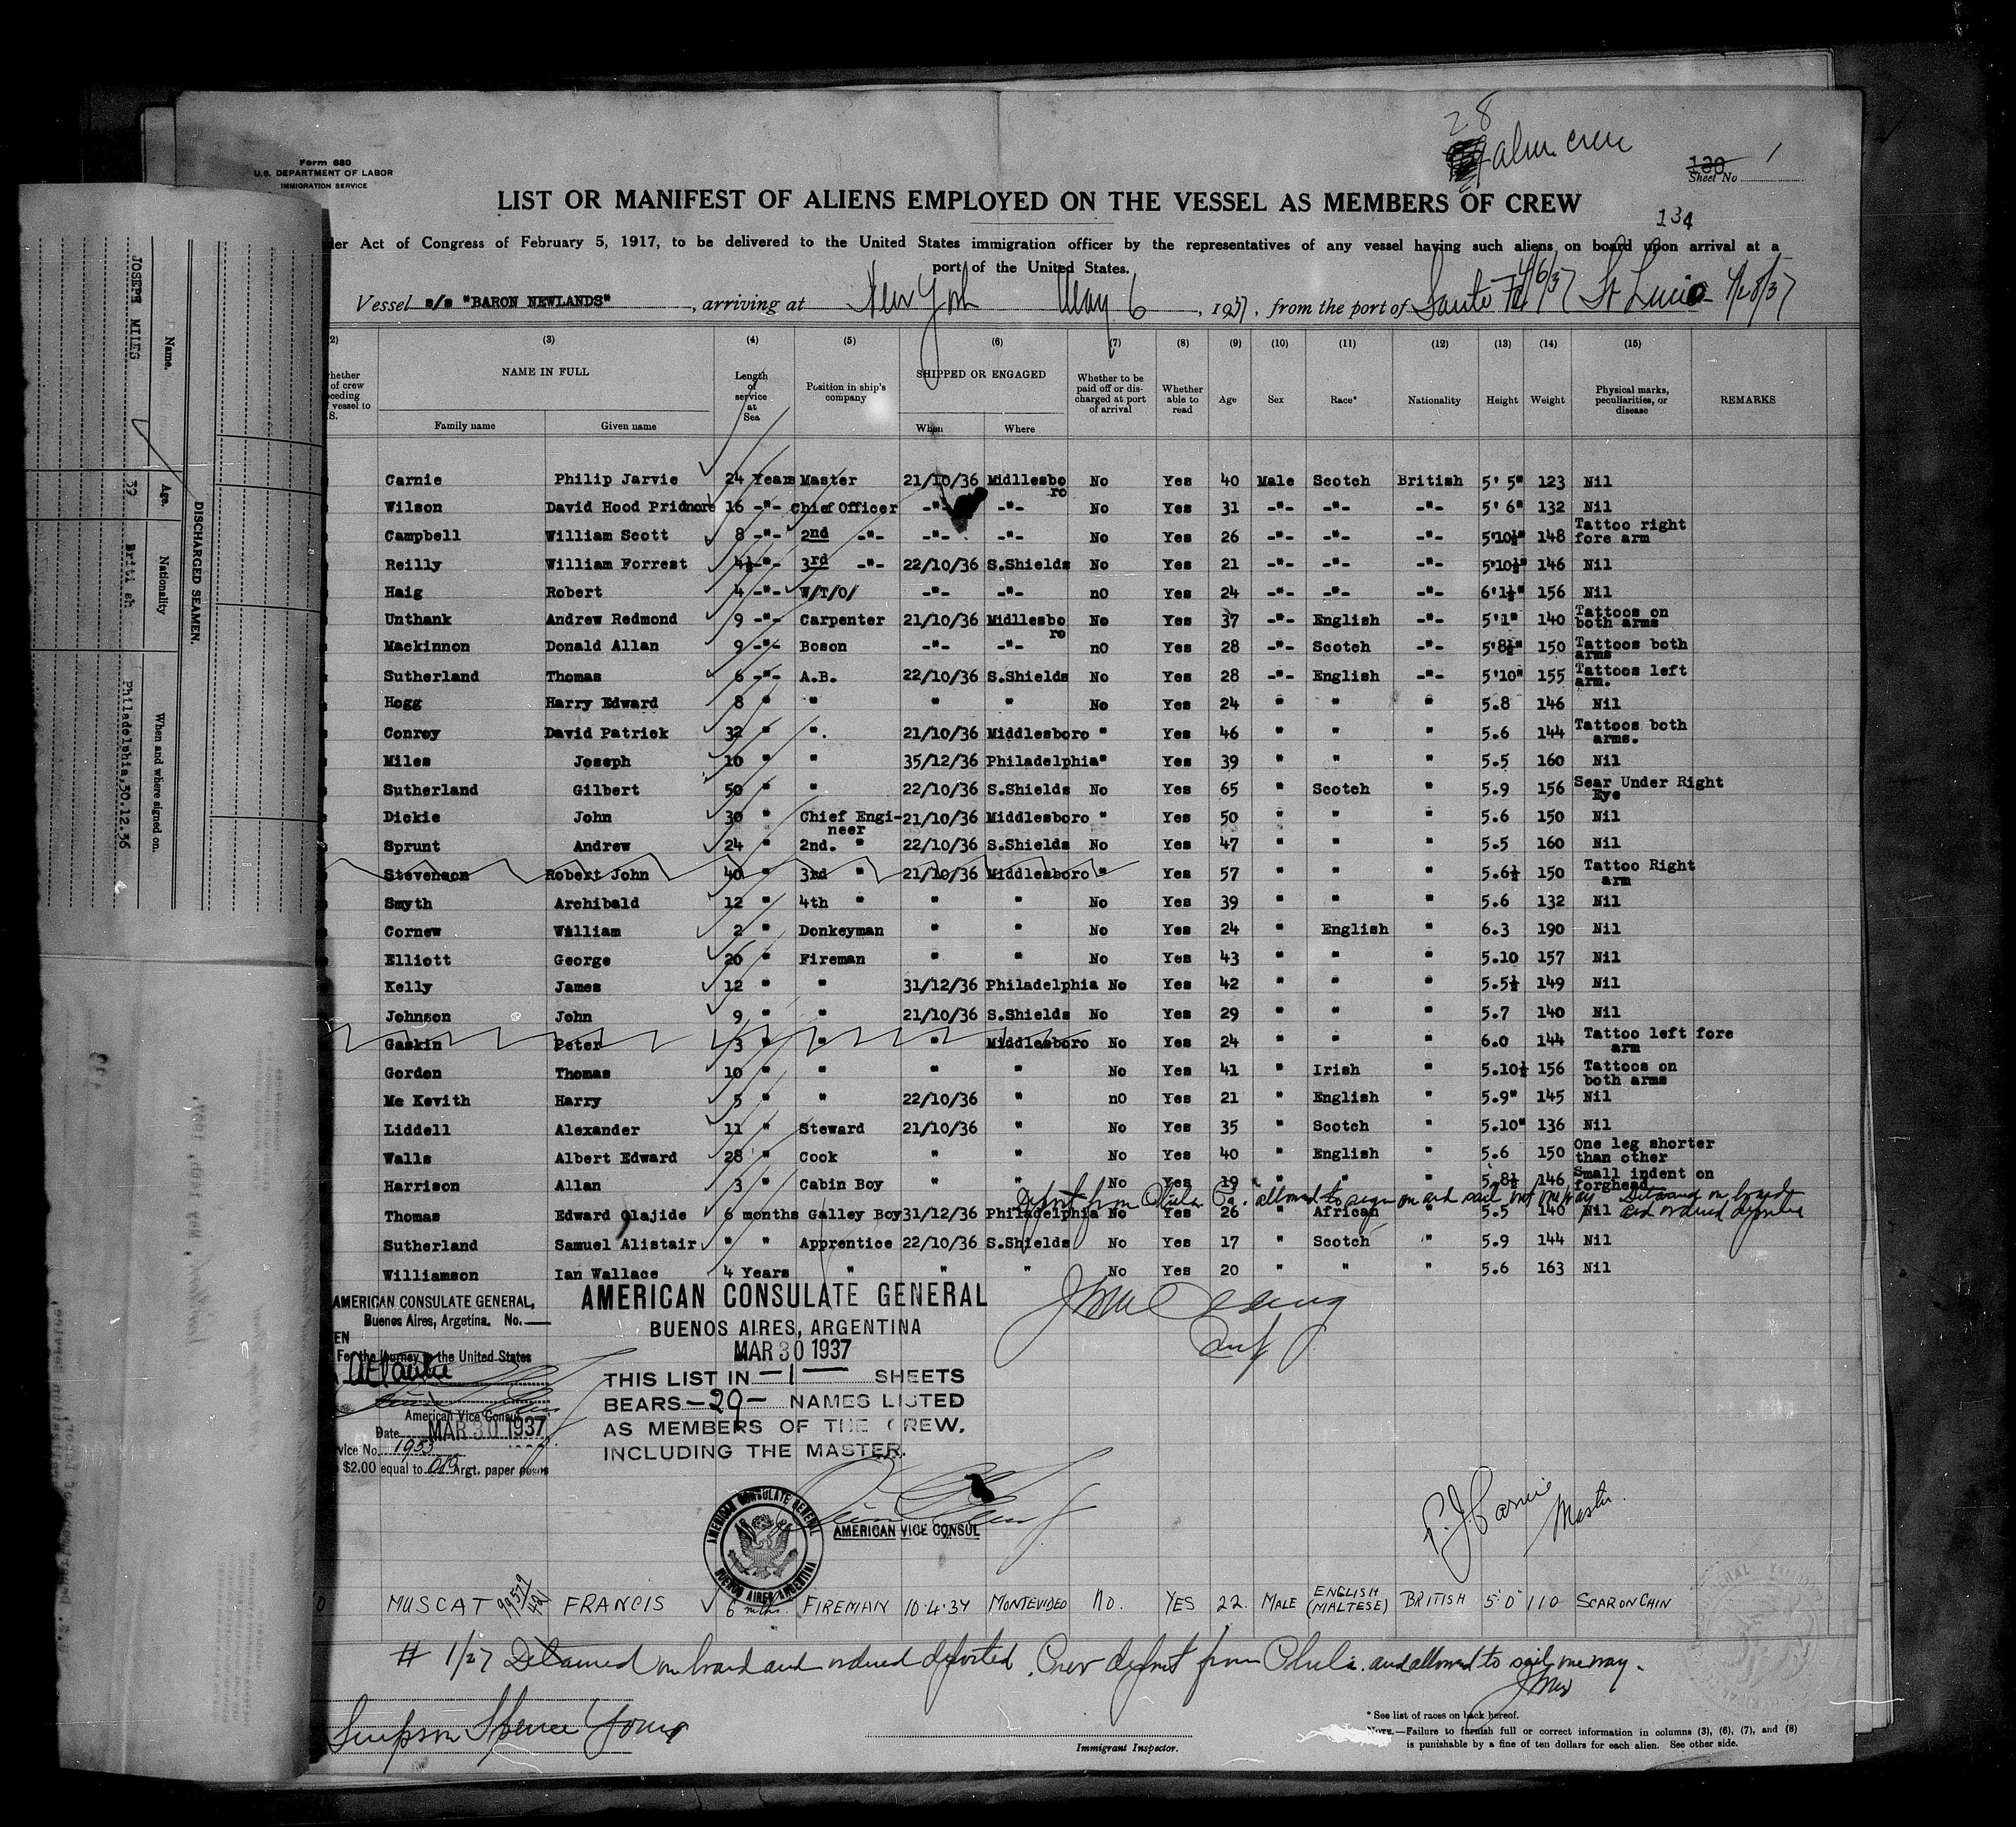 28
alien crew
Form 680
U.S. DEPARTMENT OF LABOR
IMMIGRATION SERVICE
130 1
Sheet No
LIST OR MANIFEST OF ALIENS EMPLOYED ON THE VESSEL AS MEMBERS OF CREW
134
der Act of Congress of February 5, 1917, to be delivered to the United States immigration officer by the representatives of any vessel having such aliens on board upon arrival at a
port of the United States.
Vessel s/s "BARON NEWLANDS", arriving at New York May 6, 1937, from the port of Santa Fe 4/6/37 St Lucia 4/28/37
(2) (3) (4) (5) (6) (7) (8) (9) (10) (11) (12) (13) (14) (15)
NAME IN FULL
Family name Given name
Length of service at Sea
Position in ship's company
SHIPPED OR ENGAGED
When Where
Whether to be paid off or discharged at port of arrival
Whether able to read
Age Sex Race* Nationality Height Weight
Physical marks, peculiarities, or disease
REMARKS
Carnie Philip Jarvie 24 Years Master 21/10/36 Midllesboro No Yes 40 Male Scotch British 5' 5" 123 Nil
Wilson David Hood Pridmore 16 -"- Chief Officer -"- -"- No Yes 31 -"- -"- -"- 5' 6" 132 Nil
Campbell William Scott 8 -"- 2nd -"- -"- -"- No Yes 26 -"- -"- -"- 5'10½" 148 Tattoo right fore arm
Reilly William Forrest 4½ -"- 3rd -"- 22/10/36 S.Shields No Yes 21 -"- -"- -"- 5'10½" 146 Nil
Haig Robert 4 -"- W/T/O/ -"- -"- nO Yes 24 -"- -"- -"- 6'1½" 156 Nil
Unthank Andrew Redmond 9 -"- Carpenter 21/10/36 Midllesboro No Yes 37 -"- English -"- 5'1" 140 Tattoos on both arms
Mackinnon Donald Allan 9 -"- Boson -"- -"- nO Yes 28 -"- Scotch -"- 5'8½" 150 Tattoos both arms
Sutherland Thomas 6 -"- A.B. 22/10/36 S.Shields No Yes 28 -"- English -"- 5'10" 155 Tattoos left arm.
Hogg Harry Edward 8 " " " " No Yes 24 " " " 5.8 146 Nil
Conroy David Patrick 32 " ". 21/10/36 Middlesboro " Yes 46 " " " 5.6 144 Tattoos both arms.
Miles Joseph 10 " " 35/12/36 Philadelphia" Yes 39 " " " 5.5 160 Nil
Sutherland Gilbert 50 " " 22/10/36 S.Shields No Yes 65 " Scotch " 5.9 156 Scar Under Right Eye
Dickie John 30 " Chief Engineer 21/10/36 Middlesboro " Yes 50 " " " 5.6 150 Nil
Sprunt Andrew 24 " 2nd. " 22/10/36 S.Shields No Yes 47 " " " 5.5 160 Nil
Stevenson Robert John 40 " 3rd " 21/10/36 Middlesboro " Yes 57 " " " 5.6½ 150 Tattoo Right arm
Smyth Archibald 12 " 4th " " " No Yes 39 " " " 5.6 132 Nil
Cornew William 2 " Donkeyman " " No Yes 24 " English " 6.3 190 Nil
Elliott George 26 " Fireman " " No Yes 43 " " " 5.10 157 Nil
Kelly James 12 " " 31/12/36 Philadelphia No Yes 42 " " " 5.5½ 149 Nil
Johnson John 9 " " 21/10/36 S.Shields No Yes 29 " " " 5.7 140 Nil
Gaskin Peter 3 " " " Middlesboro No Yes 24 " " " 6.0 144 Tattoo left fore arm
Gordon Thomas 10 " " " " No Yes 41 " Irish " 5.10½ 156 Tattoos on both arms
Mc Kevith Harry 5 " " 22/10/36 " nO Yes 21 " English " 5.9" 145 Nil
Liddell Alexander 11 " Steward 21/10/36 " No Yes 35 " Scotch " 5.10" 136 Nil
Walls Albert Edward 28 " Cook " " No Yes 40 " English " 5.6 150 One leg shorter than other
Harrison Allan 3 " Cabin Boy " " No Yes 19 " " " 5.8½ 146 Small indent on forghead
deport from Phila Pa. allowed to sign on and sail out one way Detained on board and ordered deported
Thomas Edward Olajide 6 months Galley Boy 31/12/36 Philadelphia No Yes 26 " African " 5.5 140 Nil
Sutherland Samuel Alistair " " Apprentice 22/10/36 S.Shields No Yes 17 " Scotch " 5.9 144 Nil
Williamson Ian Wallace 4 Years " " " No Yes 20 " " " 5.6 163 Nil
AMERICAN CONSULATE GENERAL,
Buenos Aires, Argetina. No.
EN
For the Journey to the United States
American Vice Consul
Date MAR 30 1937
vice No. 1953
$2.00 equal to Argt. paper pesos
AMERICAN CONSULATE GENERAL
BUENOS AIRES, ARGENTINA
MAR 30 1937
THIS LIST IN -1- SHEETS
BEARS -29- NAMES LISTED
AS MEMBERS OF THE CREW,
INCLUDING THE MASTER.
AMERICAN VICE CONSUL
AMERICAN CONSULATE GENERAL
BUENOS AIRES ARGENTINA
P. J. Carnie Master.
MUSCAT 99579/421 FRANCIS 6 mths. FIREMAN 10.4.37 MONTEVIDEO NO. YES 22. MALE ENGLISH (MALTESE) BRITISH 5'0" 110 SCAR ON CHIN
# 1/27 Detained on board and ordered deported. Crew deport from Phila. and allowed to sail one way.
Simpson Spence Young
Immigrant Inspector.
* See list of races on back hereof.
NOTE.—Failure to furnish full or correct information in columns (3), (6), (7), and (8)
is punishable by a fine of ten dollars for each alien. See other side.
DISCHARGED SEAMEN.
Name. Age. Nationality When and where signed on.
JOSEPH MILES 39 British Philadelphia,30.12.36